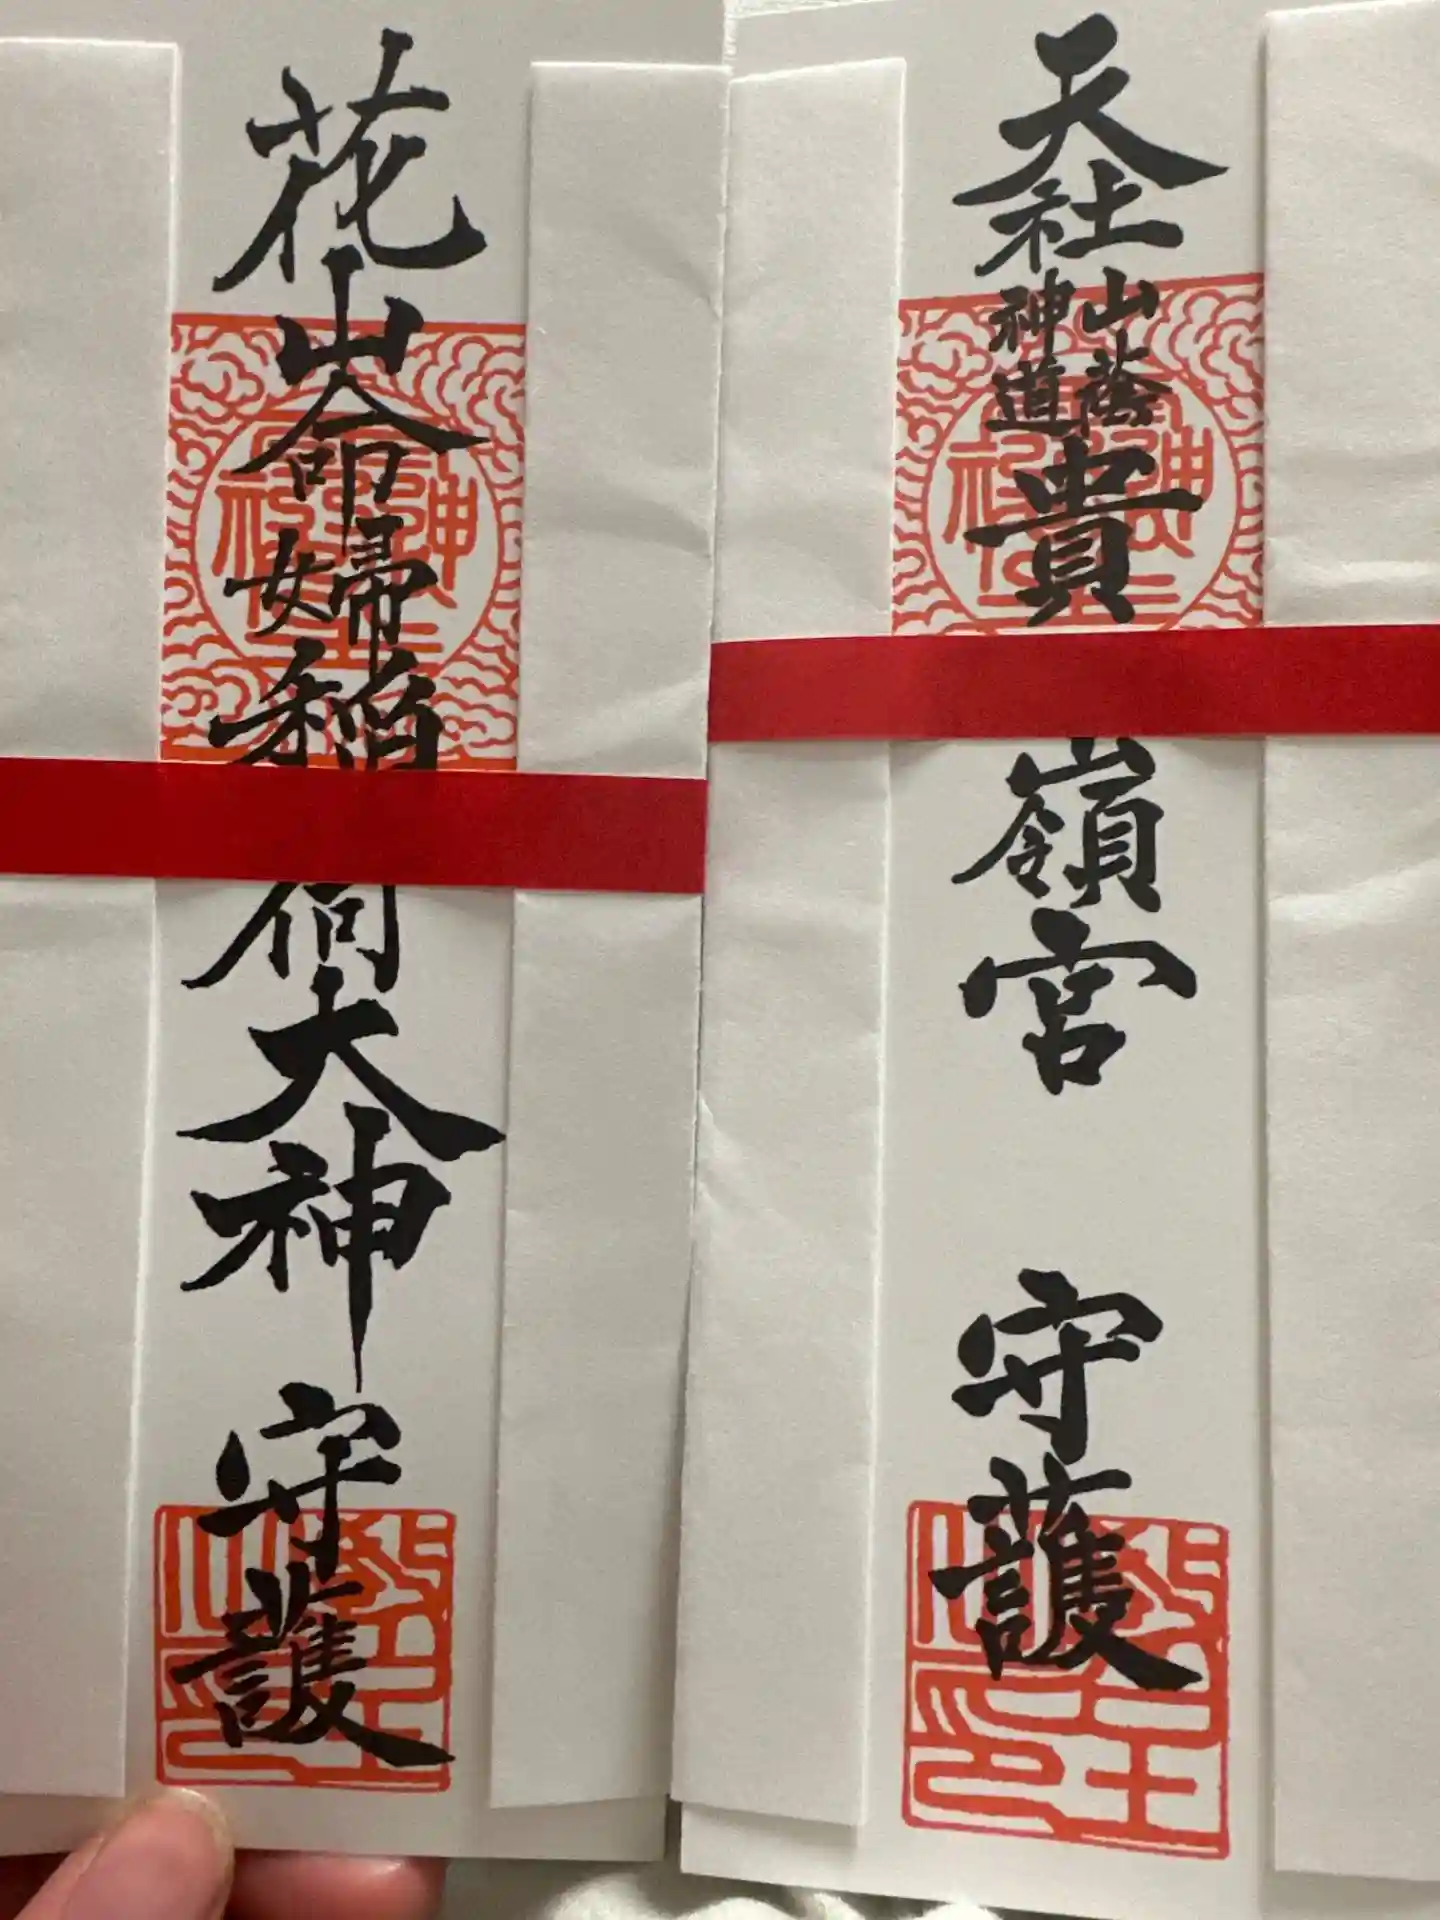 天社
山蔭
神道
貴嶺宮 守護
花山命婦稲荷大神守護